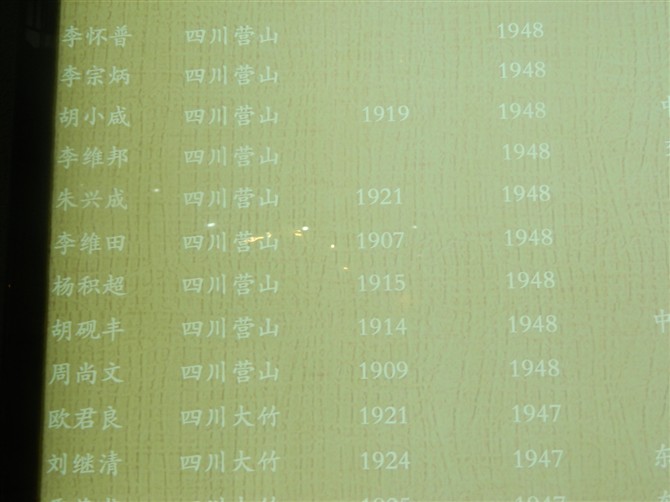 李怀普 四川营山 1948
李宗炳 四川营山 1948
胡小咸 四川营山 1919 1948
李维邦 四川营山 1948
朱兴成 四川营山 1921 1948
李维田 四川营山 1907 1948
杨积超 四川营山 1915 1948
胡砚丰 四川营山 1914 1948 中
周尚文 四川营山 1909 1948
欧君良 四川大竹 1921 1947
刘继清 四川大竹 1924 1947 东
四川大竹 1947